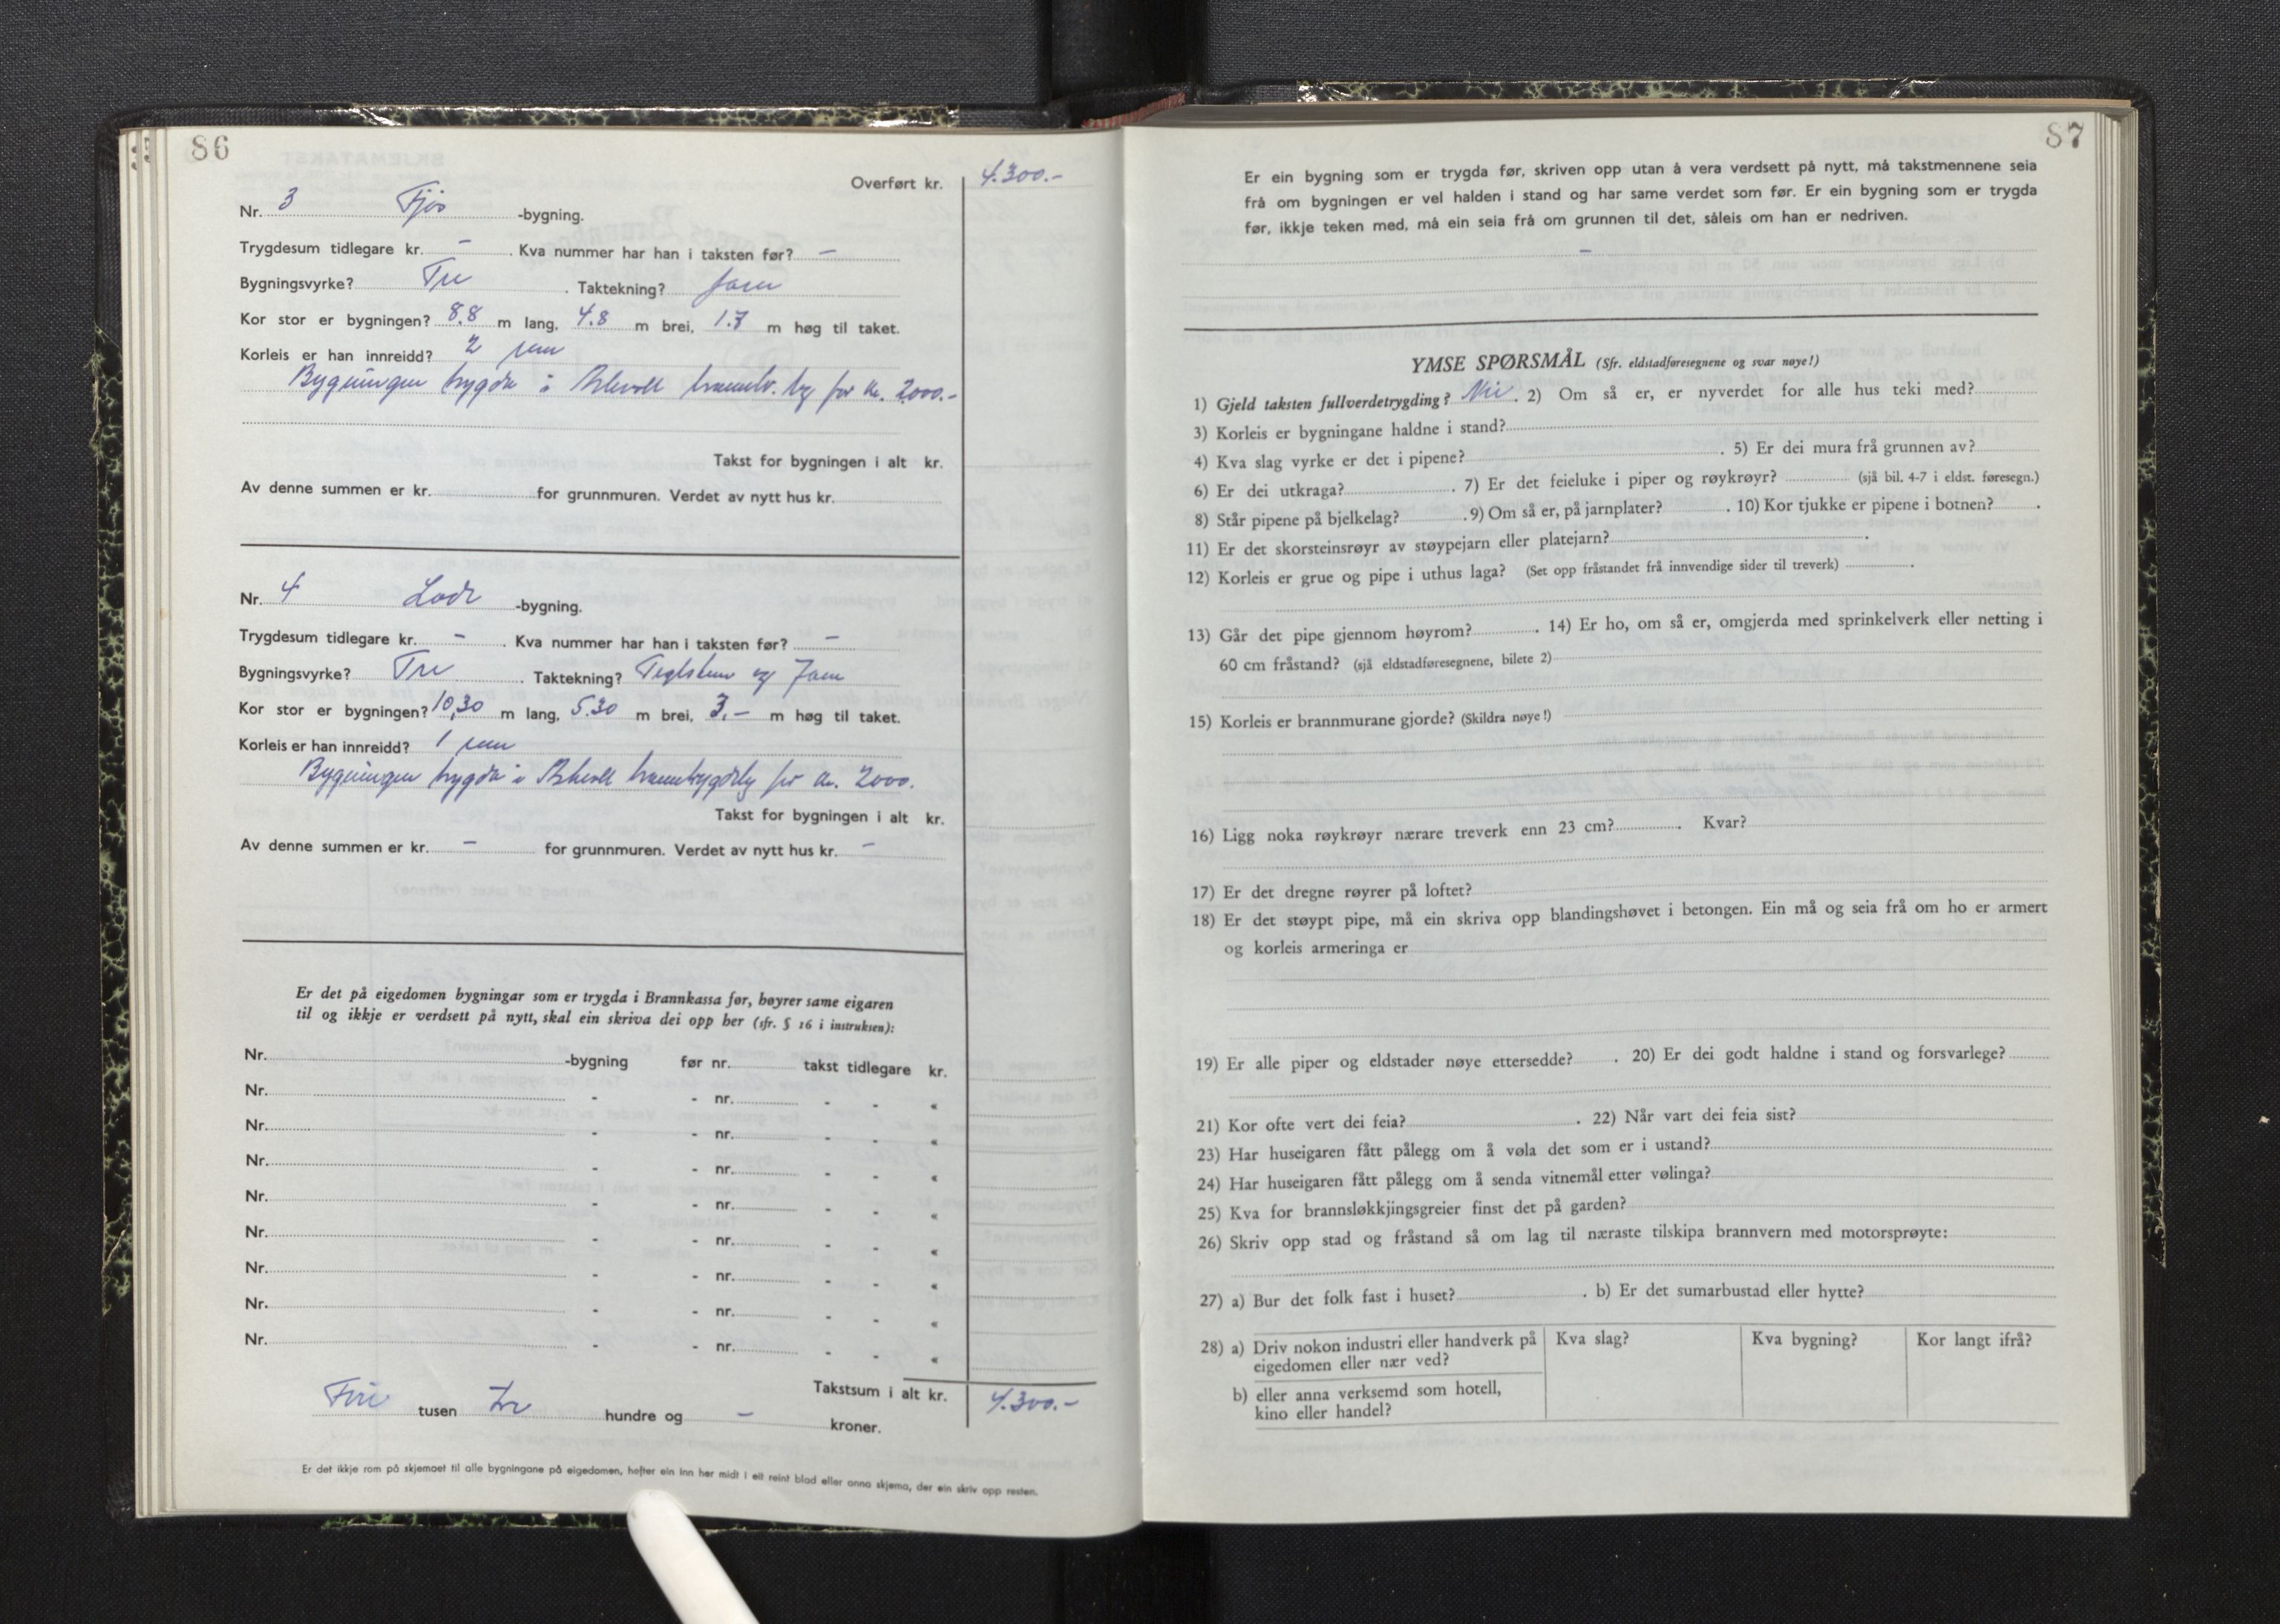 86
Overført kr. 4.300.-
Nr. 3 Fjøs -bygning.
Trygdesum tidlegare kr. - . Kva nummer har han i taksten før? -
Bygningsvyrke? Tre . Taktekning? Jarn
Kor stor er bygningen? 8.8 m lang, 4.8 m brei, 1.7 m høg til taket.
Korleis er han innreidd? 2 rum
Bygningen trygda i for kr. 2000.-
Takst for bygningen i alt kr.
Av denne summen er kr. for grunnmuren. Verdet av nytt hus kr.
Nr. 4 Lade -bygning.
Trygdesum tidlegare kr. - . Kva nummer har han i taksten før? -
Bygningsvyrke? Tre . Taktekning? Teglstein og Jarn
Kor stor er bygningen? 10,30 m lang, 5.30 m brei, 3,- m høg til taket.
Korleis er han innreidd? 1 rum
Bygningen trygda i for kr. 2000.
Takst for bygningen i alt kr.
Av denne summen er kr. - for grunnmuren. Verdet av nytt hus kr. -
Er det på eigedomen bygningar som er trygda i Brannkassa før, høyrer same eigaren
til og ikkje er verdsett på nytt, skal ein skriva dei opp her (sfr. § 16 i instruksen):
Nr. -bygning før nr. takst tidlegare kr.
Nr. - - nr. - - «
Nr. - - nr. - - «
Nr. - - nr. - - «
Nr. - - nr. - - «
Nr. - - nr. - - «
Nr. - - nr. - - «
Nr. - - nr. - - «
Nr. - - nr. - - «
Takstsum i alt kr. 4.300.-
Fire tusen tre hundre og - kroner.
Er det ikkje rom på skjemaet til alle bygningane på eigedomen, hefter ein inn her midt i eit reint blad eller anna skjema, der ein skriv opp resten.
87
Er ein bygning som er trygda før, skriven opp utan å vera verdsett på nytt, må takstmennene seia
frå om bygningen er vel halden i stand og har same verdet som før. Er ein bygning som er trygda
før, ikkje teken med, må ein seia frå om grunnen til det, såleis om han er nedriven.
-
YMSE SPØRSMÅL (Sfr. eldstadføresegnene og svar nøye!)
1) Gjeld taksten fullverdetrygding? Nei . 2) Om så er, er nyverdet for alle hus teki med?
3) Korleis er bygningane haldne i stand?
4) Kva slag vyrke er det i pipene? . 5) Er dei mura frå grunnen av?
6) Er dei utkraga? . 7) Er det feieluke i piper og røykrøyr? (sjå bil. 4-7 i eldst. føresegn.)
8) Står pipene på bjelkelag? . 9) Om så er, på jarnplater? . 10) Kor tjukke er pipene i botnen? .
11) Er det skorsteinsrøyr av støypejarn eller platejarn? .
12) Korleis er grue og pipe i uthus laga? (Set opp fråstandet frå innvendige sider til treverk) .
13) Går det pipe gjennom høyrom? . 14) Er ho, om så er, omgjerda med sprinkelverk eller netting i
60 cm fråstand? (sjå eldstadføresegnene, bilete 2)
15) Korleis er brannmurane gjorde? (Skildra nøye!)
16) Ligg noka røykrøyr nærare treverk enn 23 cm? . Kvar?
17) Er det dregne røyrer på loftet?
18) Er det støypt pipe, må ein skriva opp blandingshøvet i betongen. Ein må og seia frå om ho er armert
og korleis armeringa er
19) Er alle piper og eldstader nøye ettersedde? . 20) Er dei godt haldne i stand og forsvarlege?
21) Kor ofte vert dei feia? . 22) Når vart dei feia sist?
23) Har huseigaren fått pålegg om å vøla det som er i ustand?
24) Har huseigaren fått pålegg om å senda vitnemål etter vølinga?
25) Kva for brannsløkkjingsgreier finst det på garden?
26) Skriv opp stad og fråstand så om lag til næraste tilskipa brannvern med motorsprøyte:
27) a) Bur det folk fast i huset? . b) Er det sumarbustad eller hytte?
28) a) Driv nokon industri eller handverk på Kva slag? Kva bygning? Kor langt ifrå?
eigedomen eller nær ved?
b) eller anna verksemd som hotell,
kino eller handel?